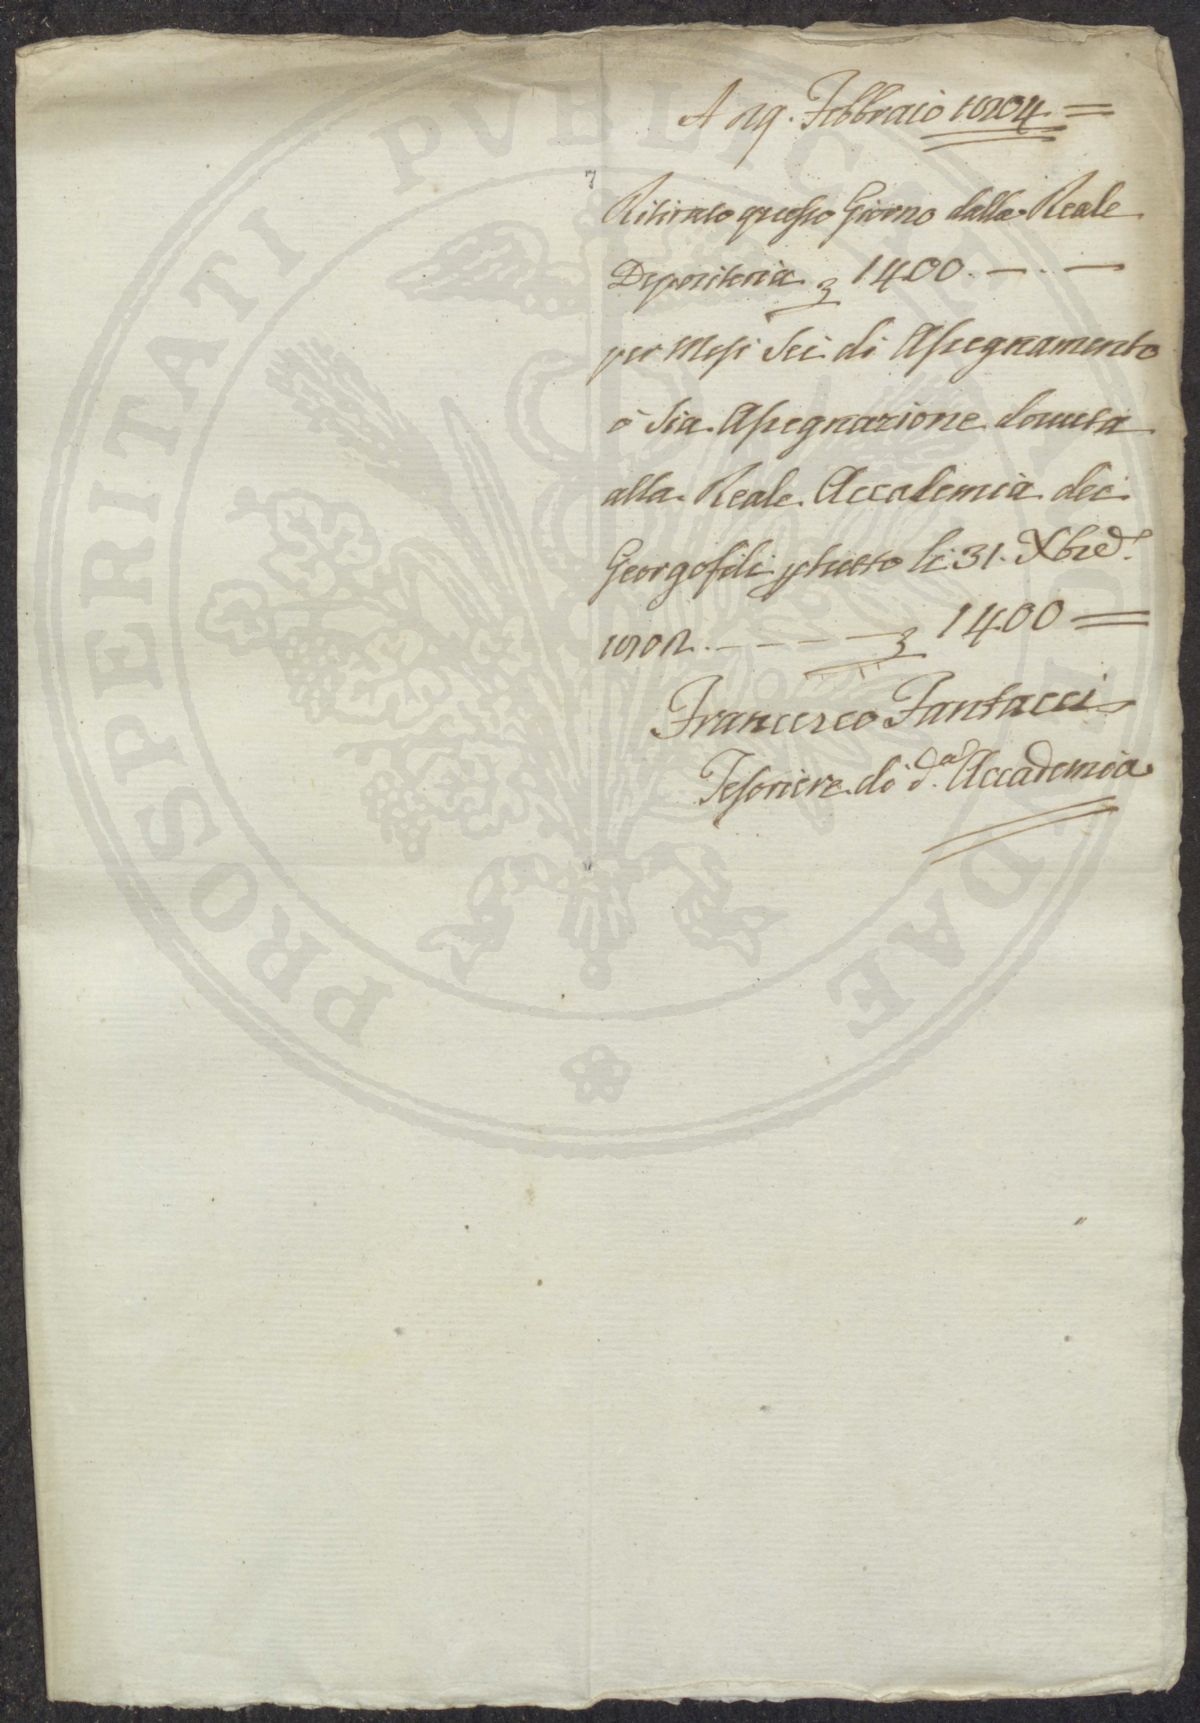 A 29. Febbraio 1804 =
Ritirato questo Giorno dalla Reale
Depositeria 1400. — . —
per Mesi Sei di Assegnamento
ò sia Assegnazione dovuta
alla Reale Accademia dei
Georgofili p tutto li 31. Xbre
1802. — — — 1400 =
Francesco Pantacci
Tesoriere di d.ª Accademia
PROSPERITATI PVBLICAE AVGENDAE